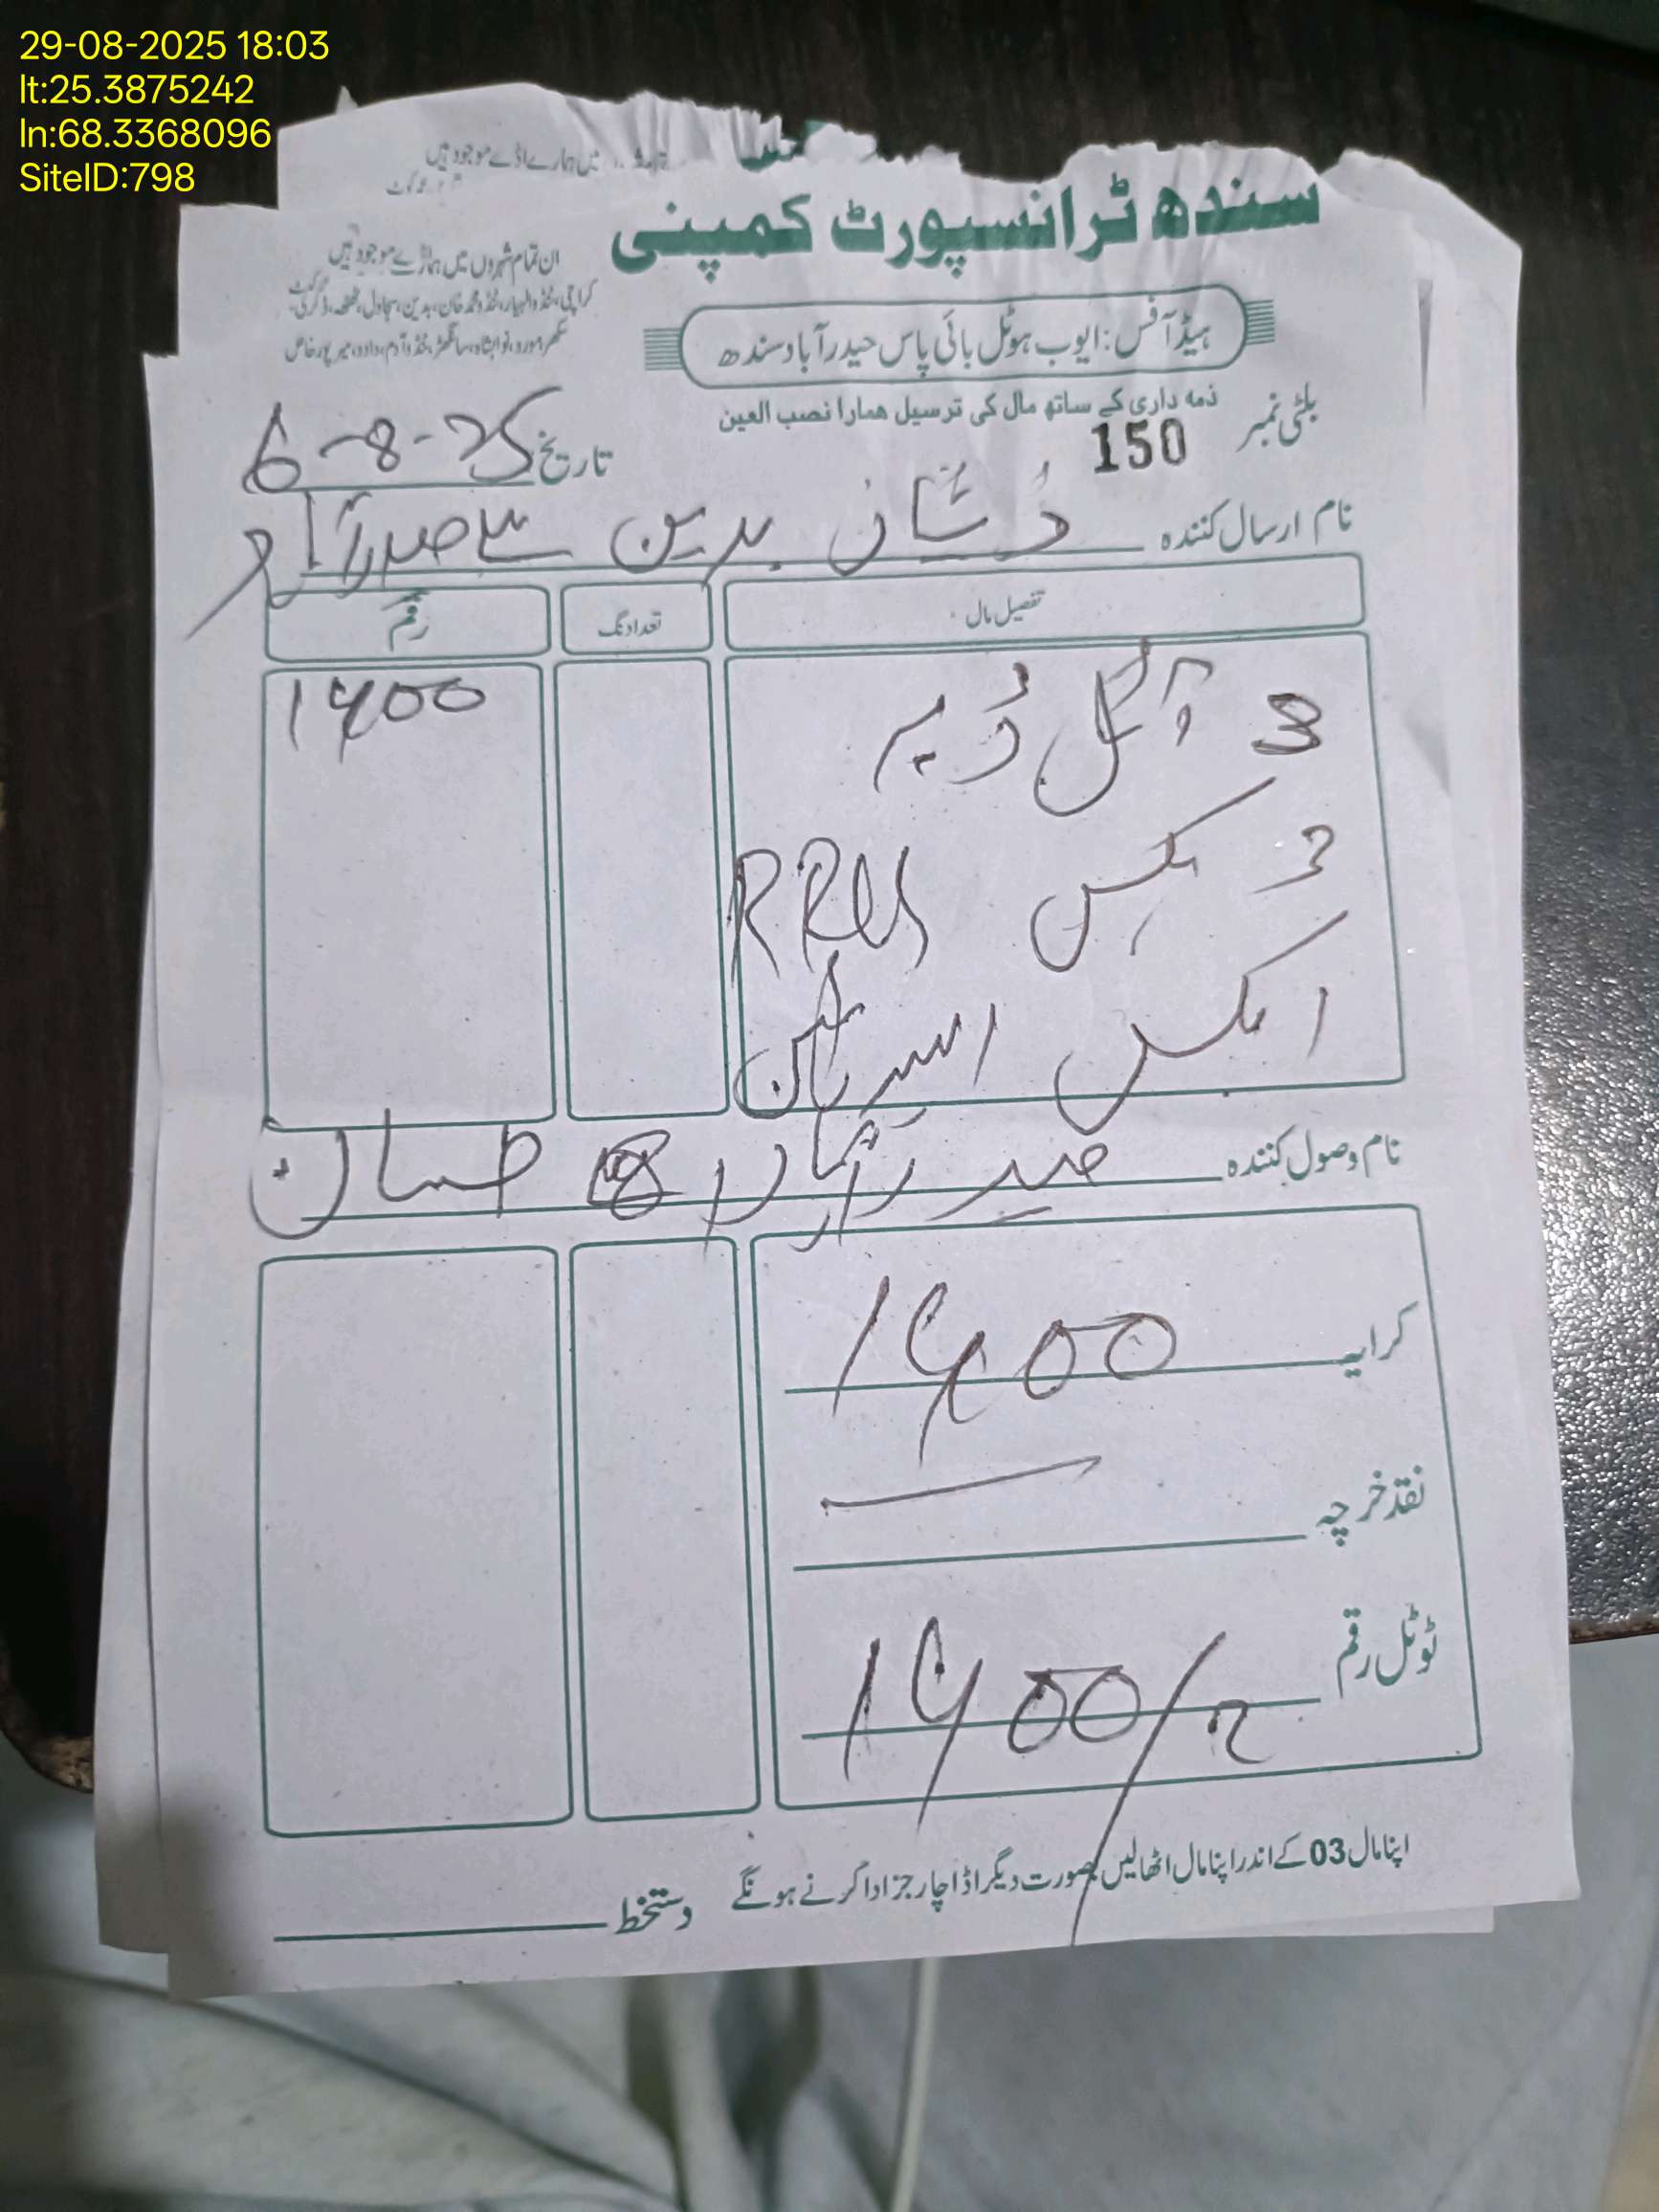 29-08-2025 18:03
lt:25.3875242
ln:68.3368096
SiteID:798
میں ہمارے اڈے موجود ہیں
سندھ ٹرانسپورٹ کمپنی
ان تمام شہروں میں ہمارے اڈے موجود ہیں
کراچی، ٹنڈوالہیار، ٹنڈو محمد خان، بدین، سجاول، ٹھٹھہ، ڈگری،
سکھر، مورو، نوابشاہ، سانگھڑ، ٹنڈوآدم، دادو، میرپورخاص
ہیڈ آفس: ایوب ہوٹل بائی پاس حیدرآباد سندھ
ذمہ داری کے ساتھ مال کی ترسیل ہمارا نصب العین
بلٹی نمبر 150
تاریخ 6-8-25
نام ارسال کنندہ ذیشان بدین سے حیدرآباد
تفصیل مال تعداد نگ رقم
3 1400
3 بکس RRUs
1 بکس
نام وصول کنندہ حیدرآباد
کرایہ 1400
نقد خرچہ
ٹوٹل رقم 1400/
اپنا مال 03 کے اندر اپنا مال اٹھالیں بصورت دیگر اڈا چارجز ادا کرنے ہونگے
دستخط